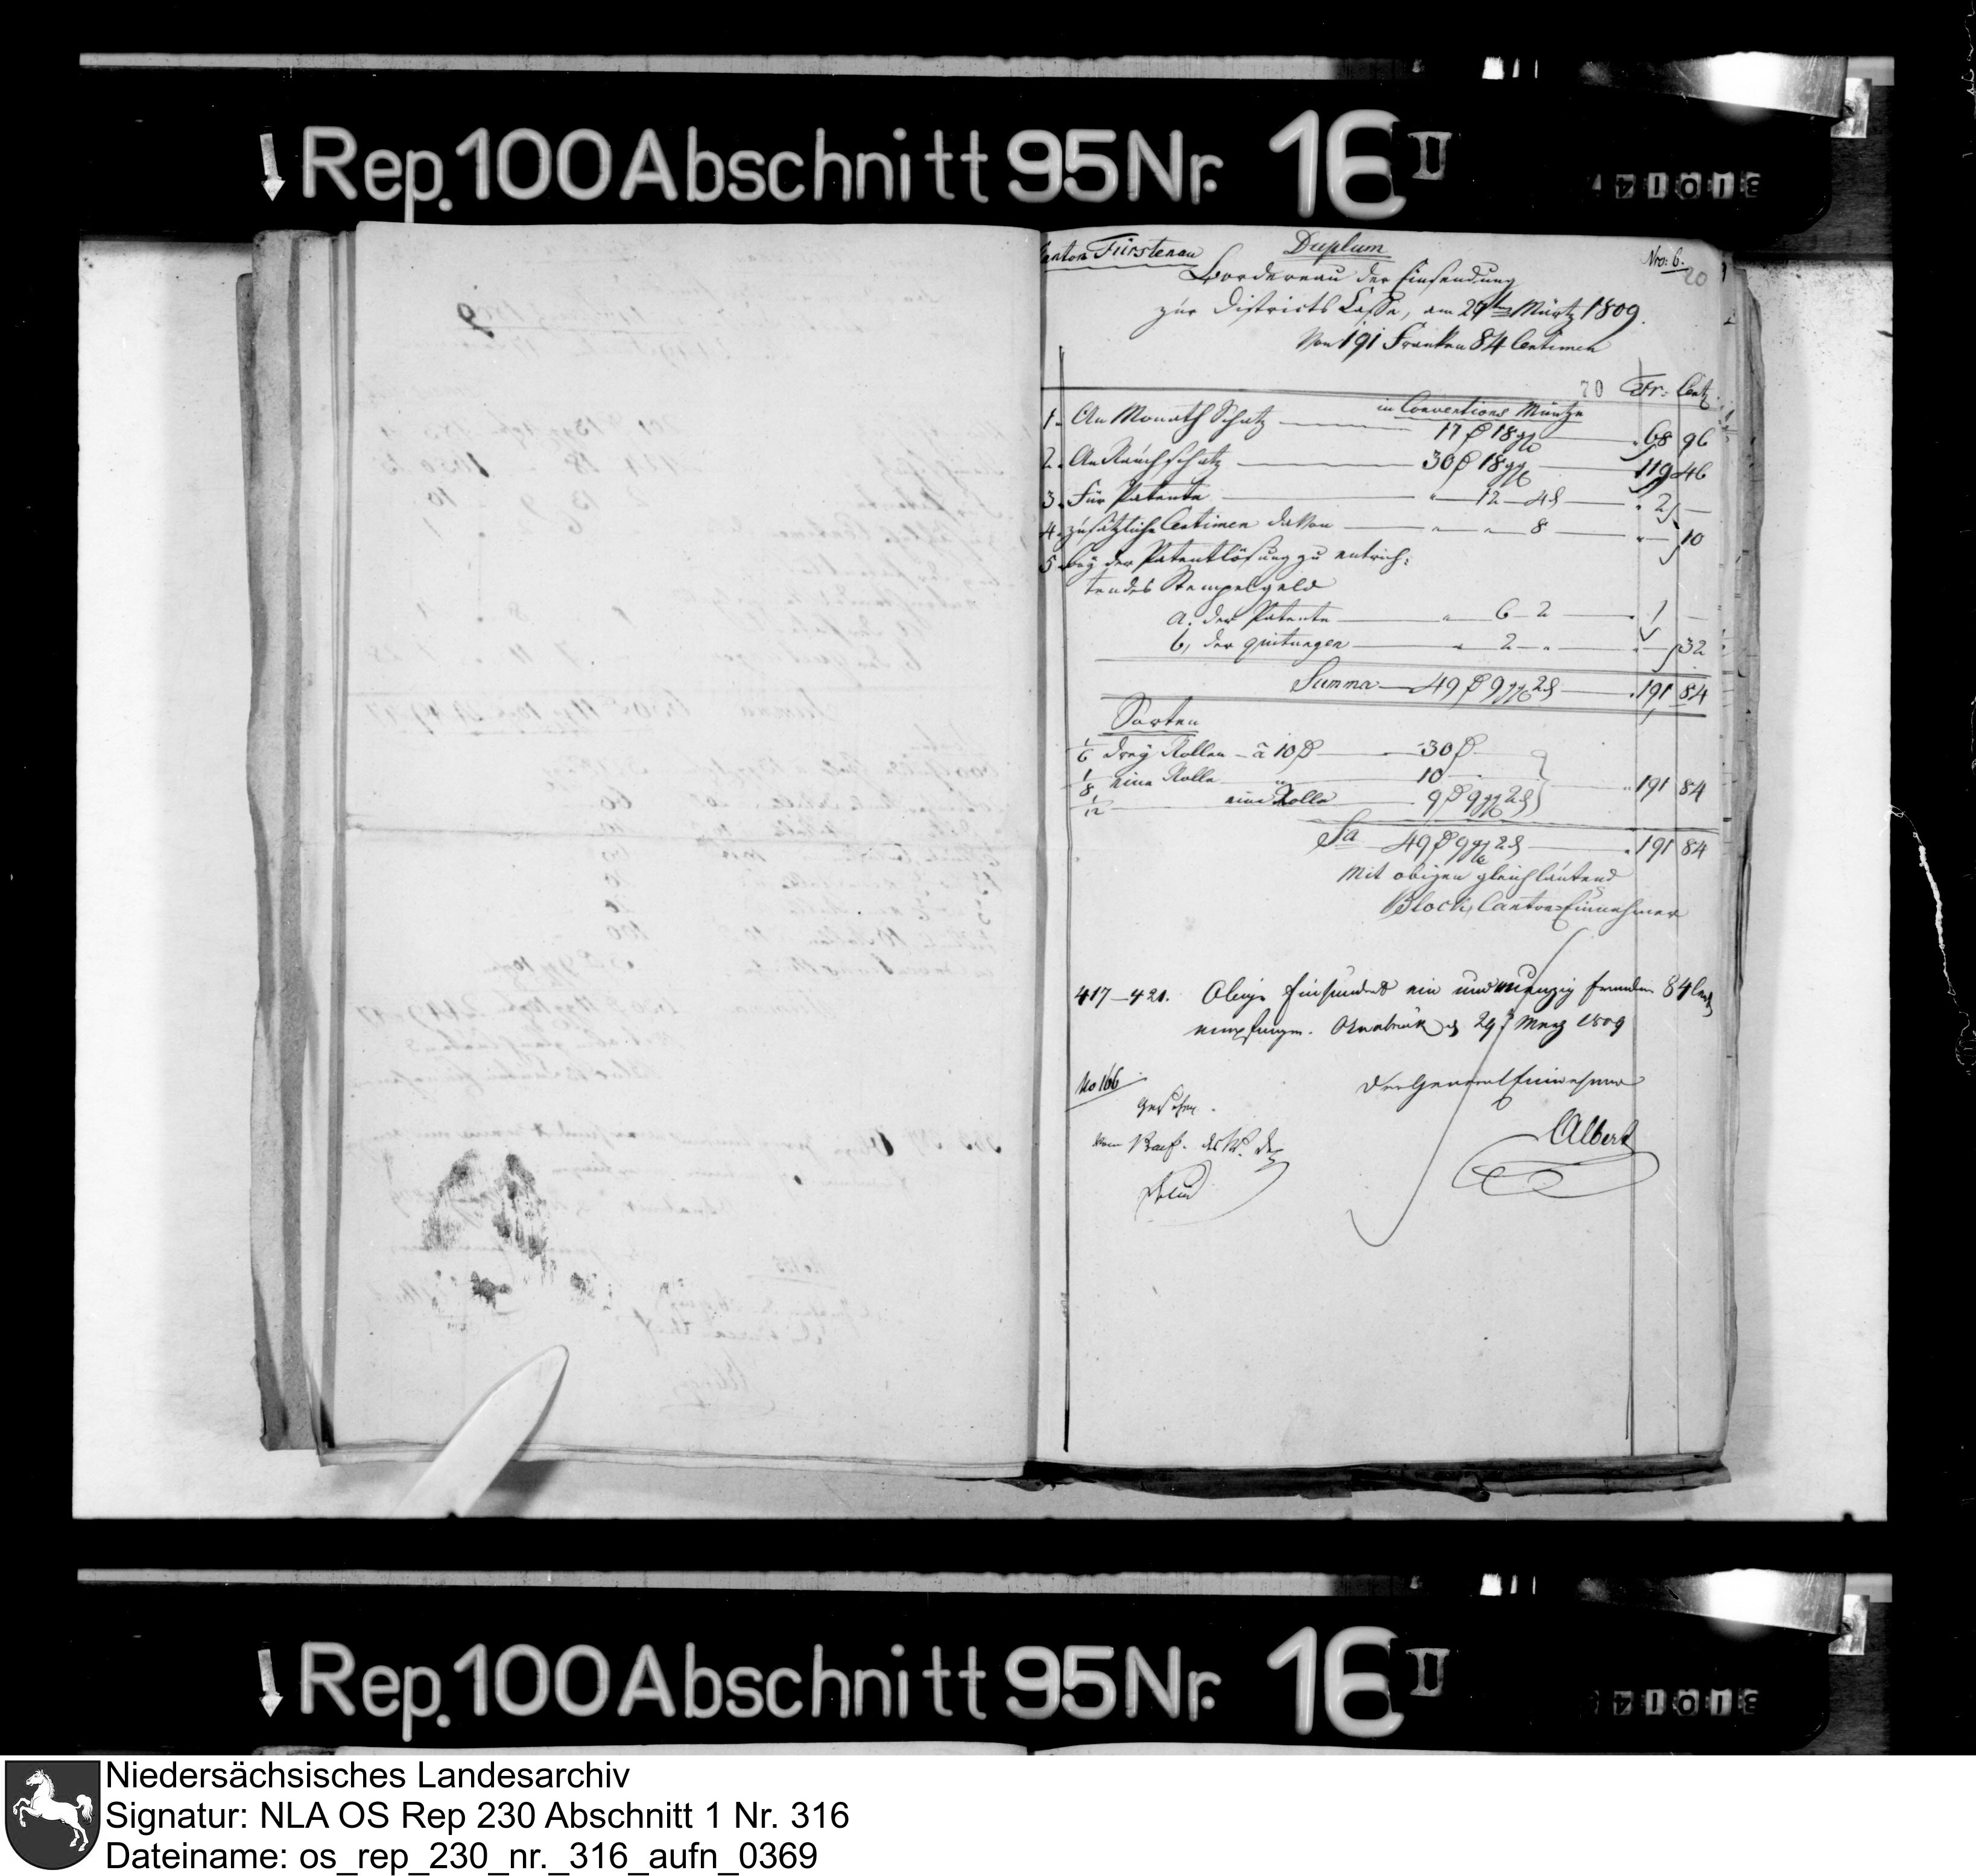 Rep. 100 Abschnitt 95 Nr. 16 II
Canton Fürstenau Duplum Nro: 6.
20
Bordereau der Einsendung
zur Districts Casse, am 29ten Märtz 1809.
Von 191 Franken 84 Centimen
70 Fr: Cent
in Conventions Müntze
1. An Monath Schatz 17 ₰ 18 ggl 68 96
2. An Rauchschatz 30 ₰ 18 ggl 119 46
3. Für Patente " 12 4 ₰ 2 —
4. zusätzliche Centimen davon " " 8 " 10
5. bey der Patentlösung zu entrich:
tendes Stempelgeld
a. der Patente " 6 2 1 —
b, der quitungen " 2 " " 32
Summa 49 ₰ 9 ggl 2 ₰ 191 84
Sorten
1/6 drey Rollen a 10 ₰ 30 ₰
1/8 eine Rolle " 10
1/12 eine Rolle 9 ₰ 9 ggl 2 ₰ 191 84
Sa 49 ₰ 9 ggl 2 ₰ 191 84
Mit obigen gleichlautend
Block, Canton=Einnehmer
417–421. Obige Einhundert ein und neunzig franken 84 Cent
empfangen. Osnabrück d 29 t Merz 1809
No 166 Der General Einnehmer
Gesehen.
Albert
vom Praef.
Rep. 100 Abschnitt 95 Nr. 16 II
Niedersächsisches Landesarchiv
Signatur: NLA OS Rep 230 Abschnitt 1 Nr. 316
Dateiname: os_rep_230_nr._316_aufn_0369